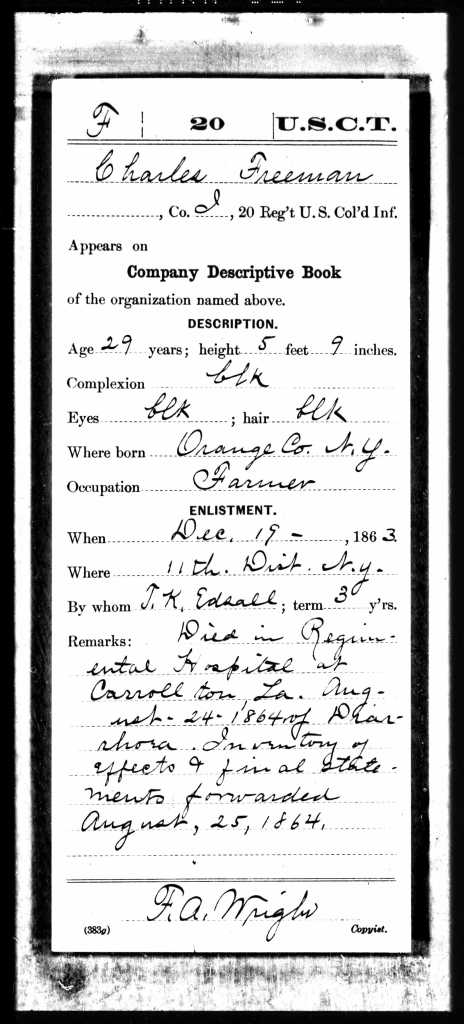 F | 20 | U.S.C.T.
Charles Freeman
, Co. I, 20 Reg't U. S. Col'd Inf.
Appears on
Company Descriptive Book
of the organization named above.
DESCRIPTION.
Age 29 years; height 5 feet 9 inches.
Complexion blk
Eyes blk ; hair blk
Where born Orange Co. N.Y.
Occupation Farmer
ENLISTMENT.
When Dec. 19 - , 1863.
Where 11th. Dist. N.Y.
By whom T. K. Edsall ; term 3 y'rs.
Remarks: Died in Regim-
ental Hospital at
Carrollton, La. Aug-
ust - 24 - 1864 of Diar-
rhoea. Inventory of
effects & final state-
ments forwarded
August, 25, 1864.
F. A. Wright
(383g) Copyist.